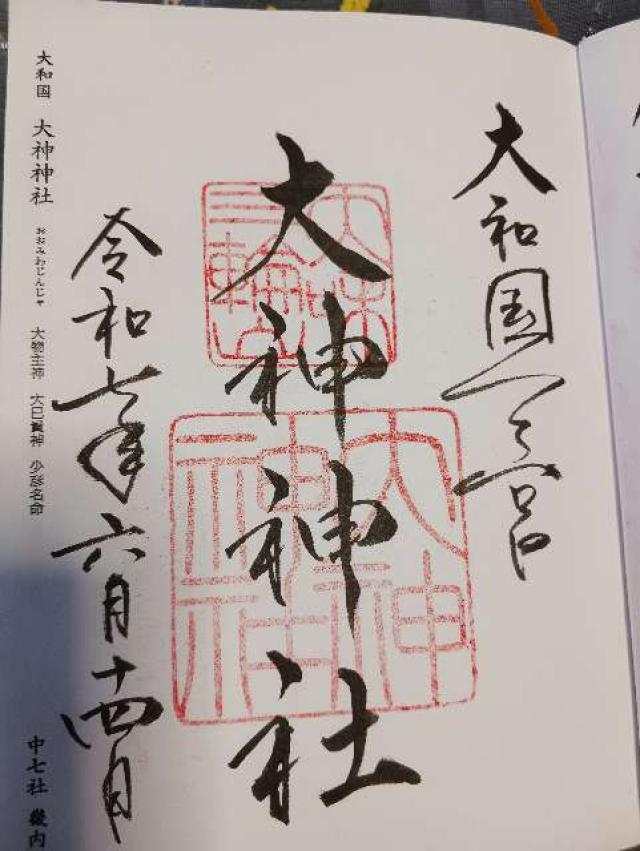 大和国一之宮
大神神社
令和七年六月十四日
大和国 大神神社 おおみわじんじゃ 大物主神 大己貴神 少彦名命
中七社 幾内
大神神社